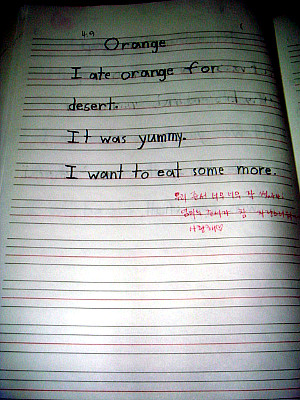 4.9
Orange
I ate orange for
desert.
It was yummy.
I want to eat some more.
너무 너무 잘
참
사랑해